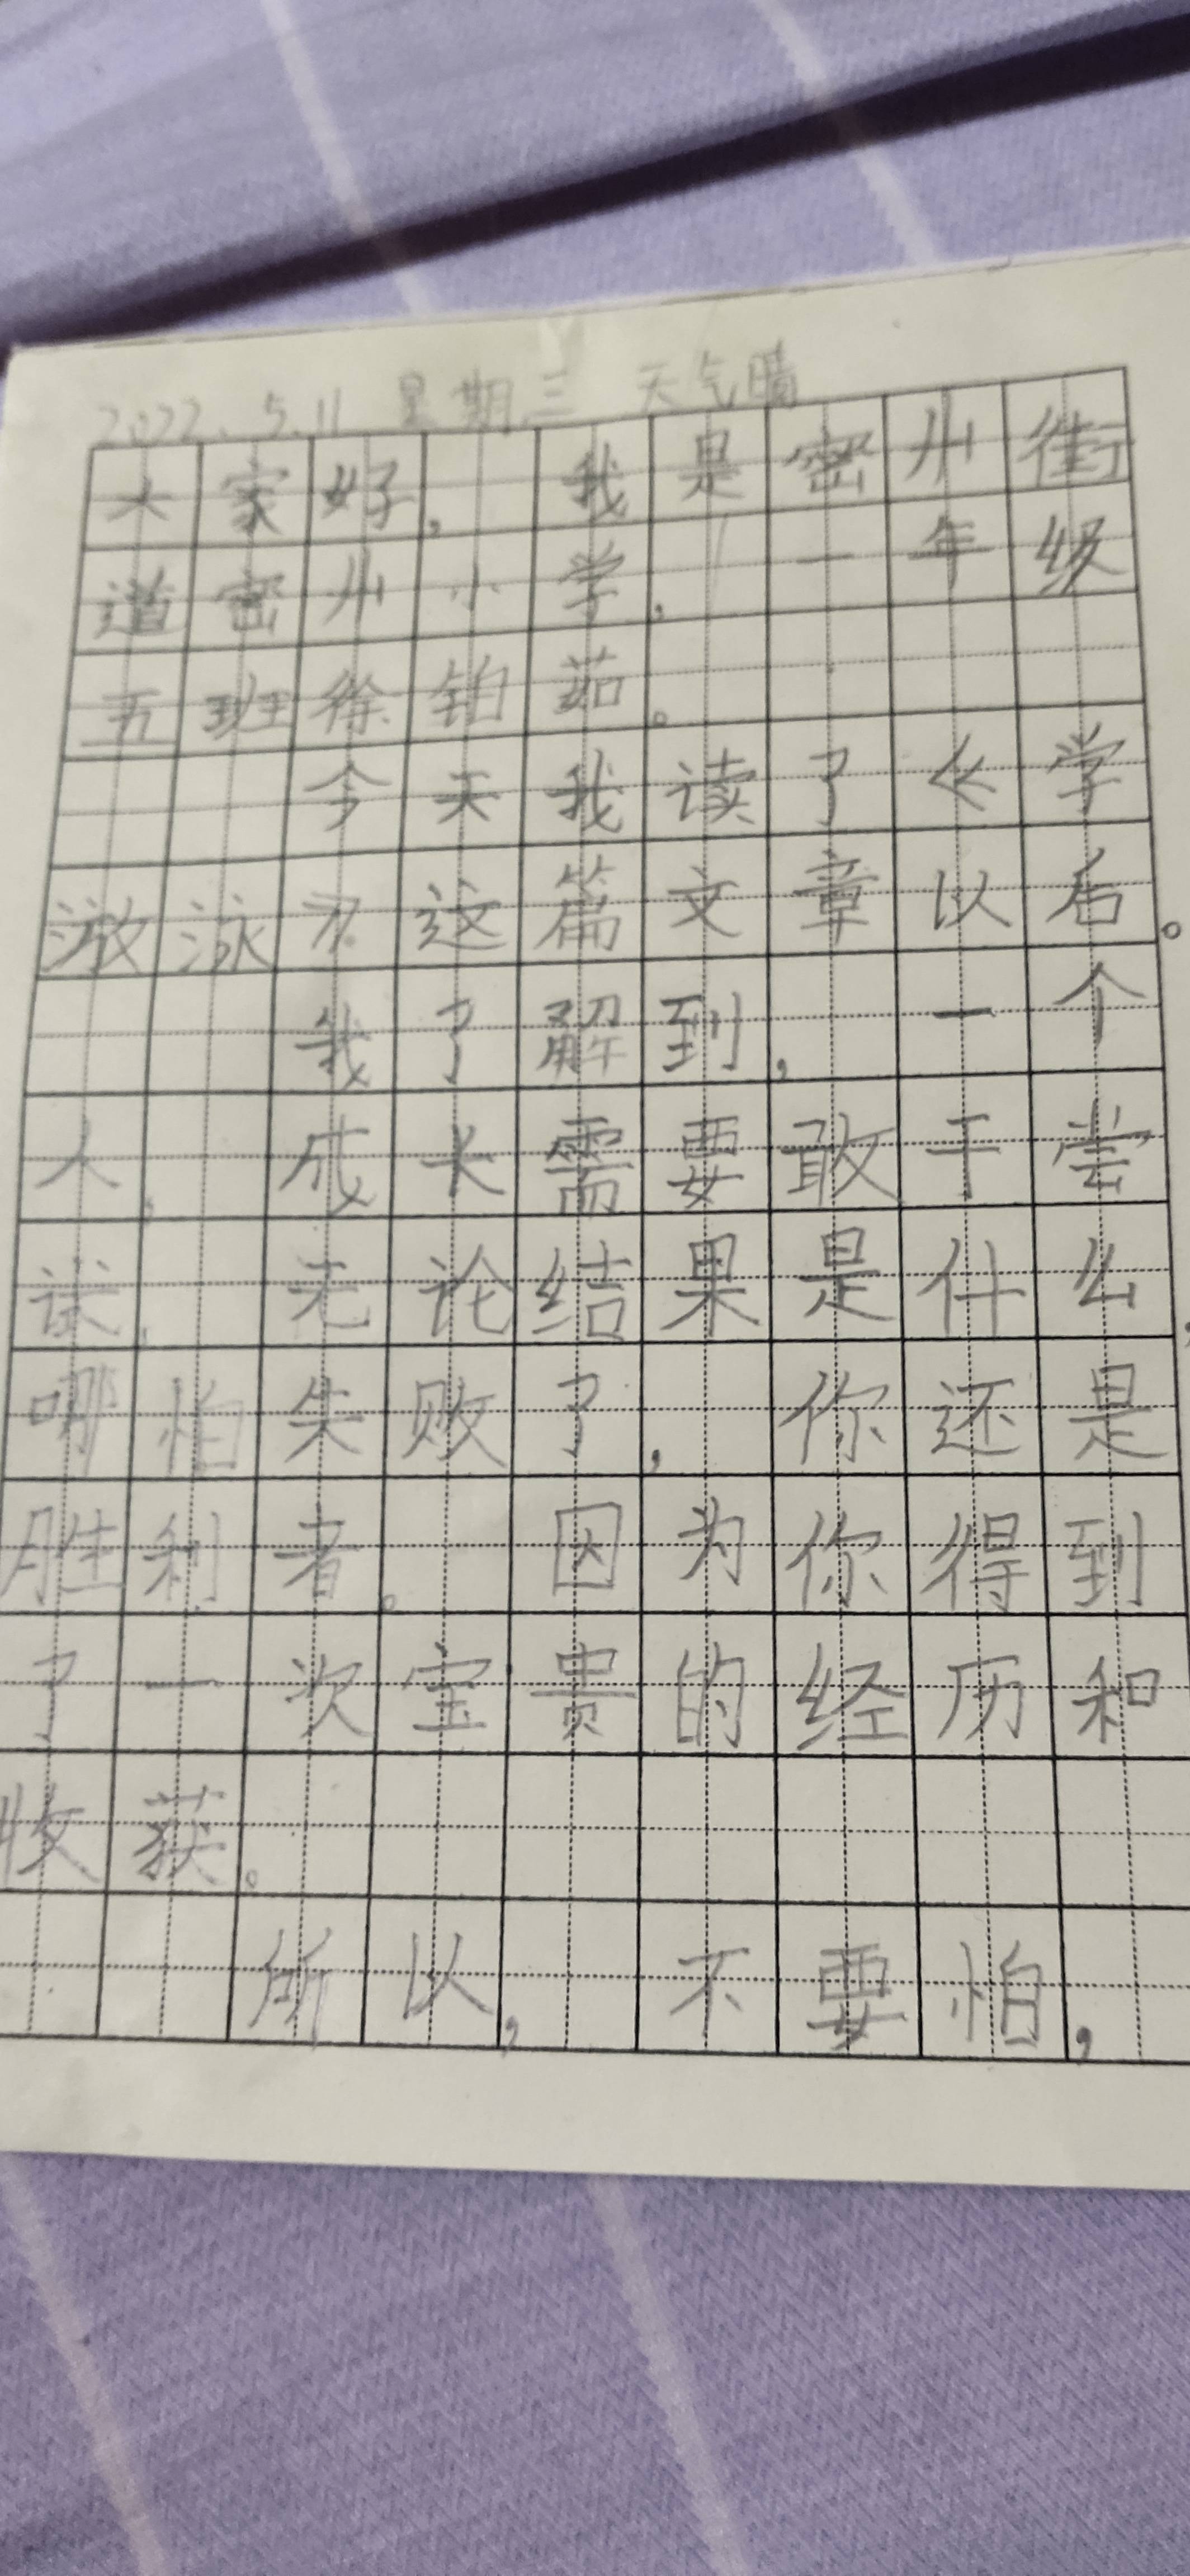 2022.5.11 星期三 天气晴
大家好，我是密州街
道密州小学，一年级
五班徐铂茹。
今天我读了《学
游泳》这篇文章以后。
我了解到，一个
人，成长需要敢于尝
试，无论结果是什么，
哪怕失败了，你还是
胜利者。因为你得到
了一次宝贵的经历和
收获。
所以，不要怕，